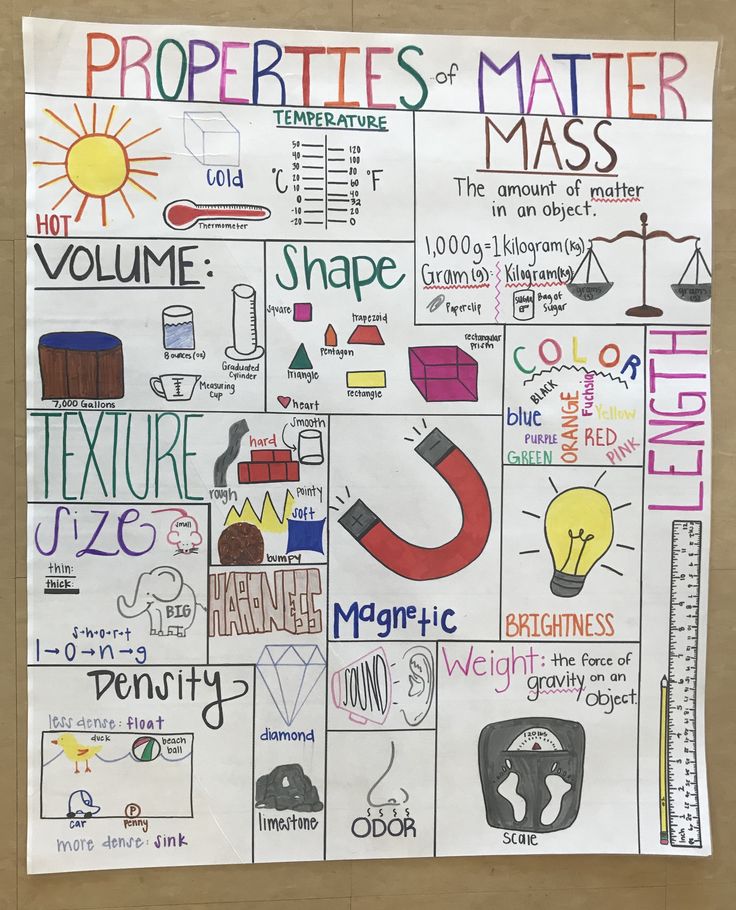 PROPERTIES of MATTER
TEMPERATURE
HOT
cold
Thermometer
50
40
30
20
10
0
-10
-20
°C
120
100
80
60
40
32
20
0
°F
MASS
The amount of matter
in an object.
1,000g=1 kilogram (kg)
Gram (g): Kilogram (kg)
Paperclip
SUGAR
Bag of
Sugar
grams
(g)
grams
(g)
VOLUME:
7,000 Gallons
8 ounces (oz)
Measuring
Cup
Graduated
Cylinder
Shape
square
trapezoid
pentagon
triangle
rectangle
heart
rectangular
prism
COLOR
BLACK
Fuchsia
blue
ORANGE
Yellow
PURPLE
RED
GREEN
PINK
LENGTH
TEXTURE
rough
hard
smooth
pointy
soft
bumpy
Size
small
thin:
thick:
BIG
s→h→o→r→t
l→o→n→g
HARDNESS
diamond
limestone
Magnetic
BRIGHTNESS
Density
less dense: float
duck
beach
ball
car
P
Penny
more dense: sink
SOUND
ODOR
Weight: the force of
gravity on an
object.
120 LBS
scale
Inch